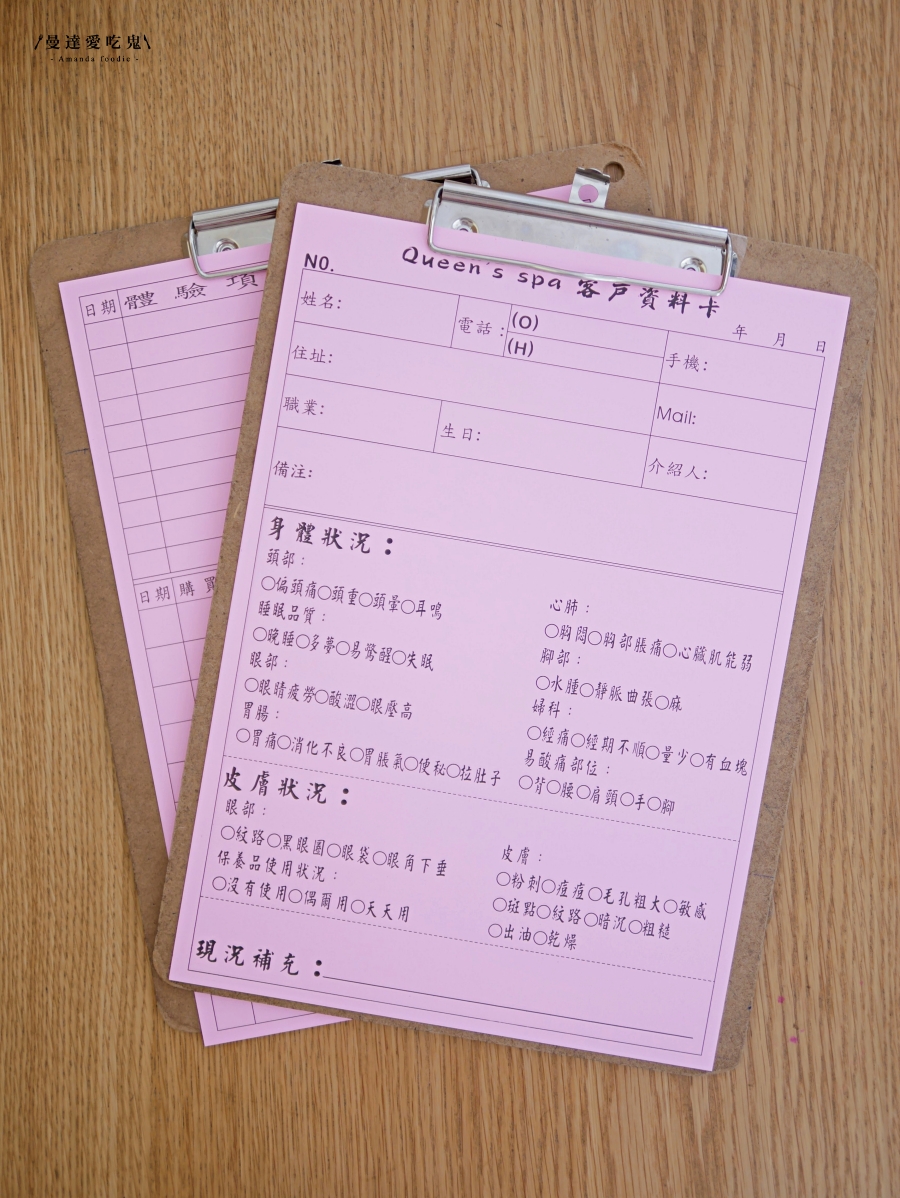 曼達愛吃鬼
- Amanda foodie -
日期 體驗項
日期 購買
NO.
Queen's spa 客戶資料卡
年 月 日
姓名:
電話:
(O)
(H)
手機:
住址:
Mail:
職業:
生日:
介紹人:
備注:
身體狀況:
頭部:
○偏頭痛○頭重○頭暈○耳鳴
睡眠品質:
○晚睡○多夢○易驚醒○失眠
眼部:
○眼睛疲勞○酸澀○眼壓高
胃腸:
○胃痛○消化不良○胃脹氣○便秘○拉肚子
心肺:
○胸悶○胸部脹痛○心臟肌能弱
腳部:
○水腫○靜脈曲張○麻
婦科:
○經痛○經期不順○量少○有血塊
易酸痛部位:
○背○腰○肩頸○手○腳
皮膚狀況:
眼部:
○紋路○黑眼圈○眼袋○眼角下垂
保養品使用狀況:
○沒有使用○偶爾用○天天用
皮膚:
○粉刺○痘痘○毛孔粗大○敏感
○斑點○紋路○暗沉○粗糙
○出油○乾燥
現況補充: